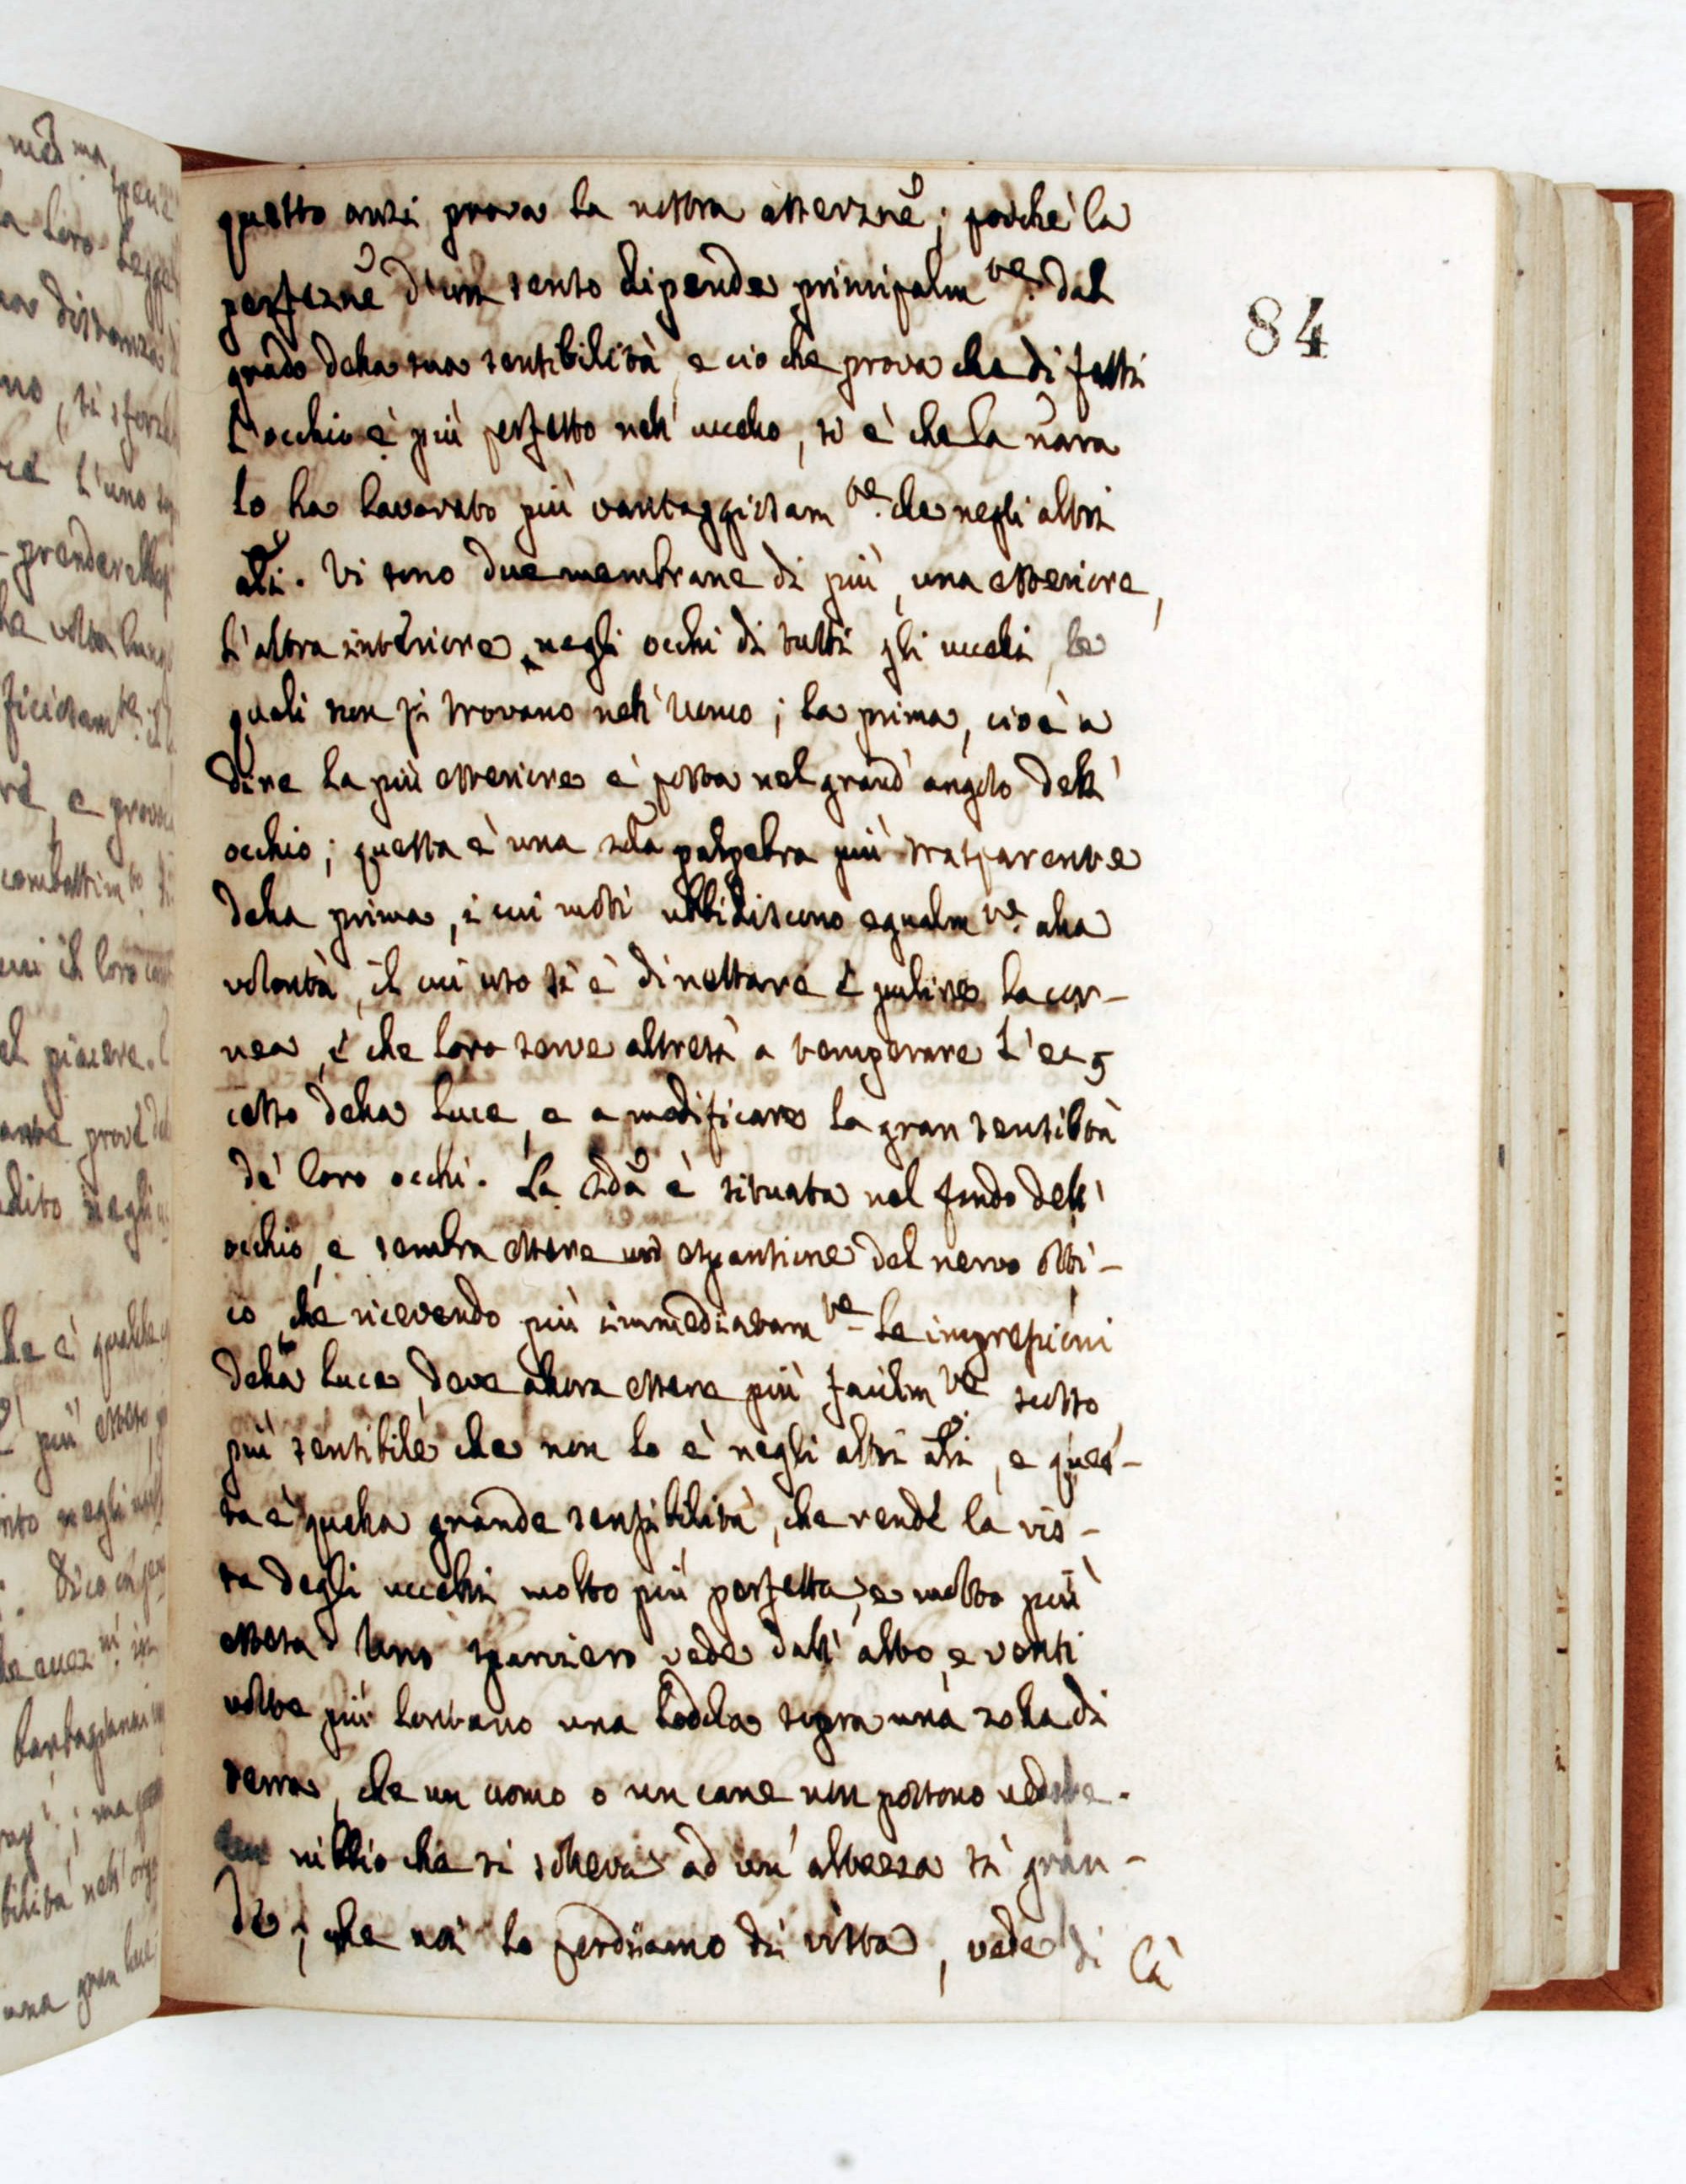 84
questo anzi prova la nostra osserzne; poiche la
perfezne d'un senso dipende principalm.te dal
grado della sua sensibilità, e cio che prova che di fatti
l'occhio è più perfetto nell' uccello, si è che la nara
lo ha lavorato più vantaggiosam.te che negli altri
ali. Vi sono due membrane di più, una esteriore,
l'altra interiore negli occhi di tutti gli uccelli, le
quali non si trovano nell' Uomo; la prima, cioè a
dire la più esteriore è posta nel grand' angolo dell'
occhio; questa è una 2da palpebra più trasparente
della prima, i cui moti ubbidiscono egualm.te alla
volontà, il cui uso si è di nettare e pulire la cor-
nea, e che loro serve altresì a temperare l'ec-
cesso della luce, e a modificare la gran sensibtà
de' loro occhi. La 2da è situata nel fondo dell'
occhio, e sembra essere un' espansione del nervo otti-
co che ricevendo più immediatam.te le impressioni
della luce, deve allora essere più facilm.te scosso
più sensibile che non lo è negli altri ali, e ques-
ta è quella grande sensibilità, che rende la vis-
ta degli uccelli molto più perfetta, e molto più
estesa. Uno sparviero vede dall' alto, e venti
volte più lontano una lodola sopra una zolla di
terra, che un uomo o un cane non possono vedere.
Un nibbio che si solleva ad un' altezza sì gran-
de, che noi lo perdiamo di vista, vede di là